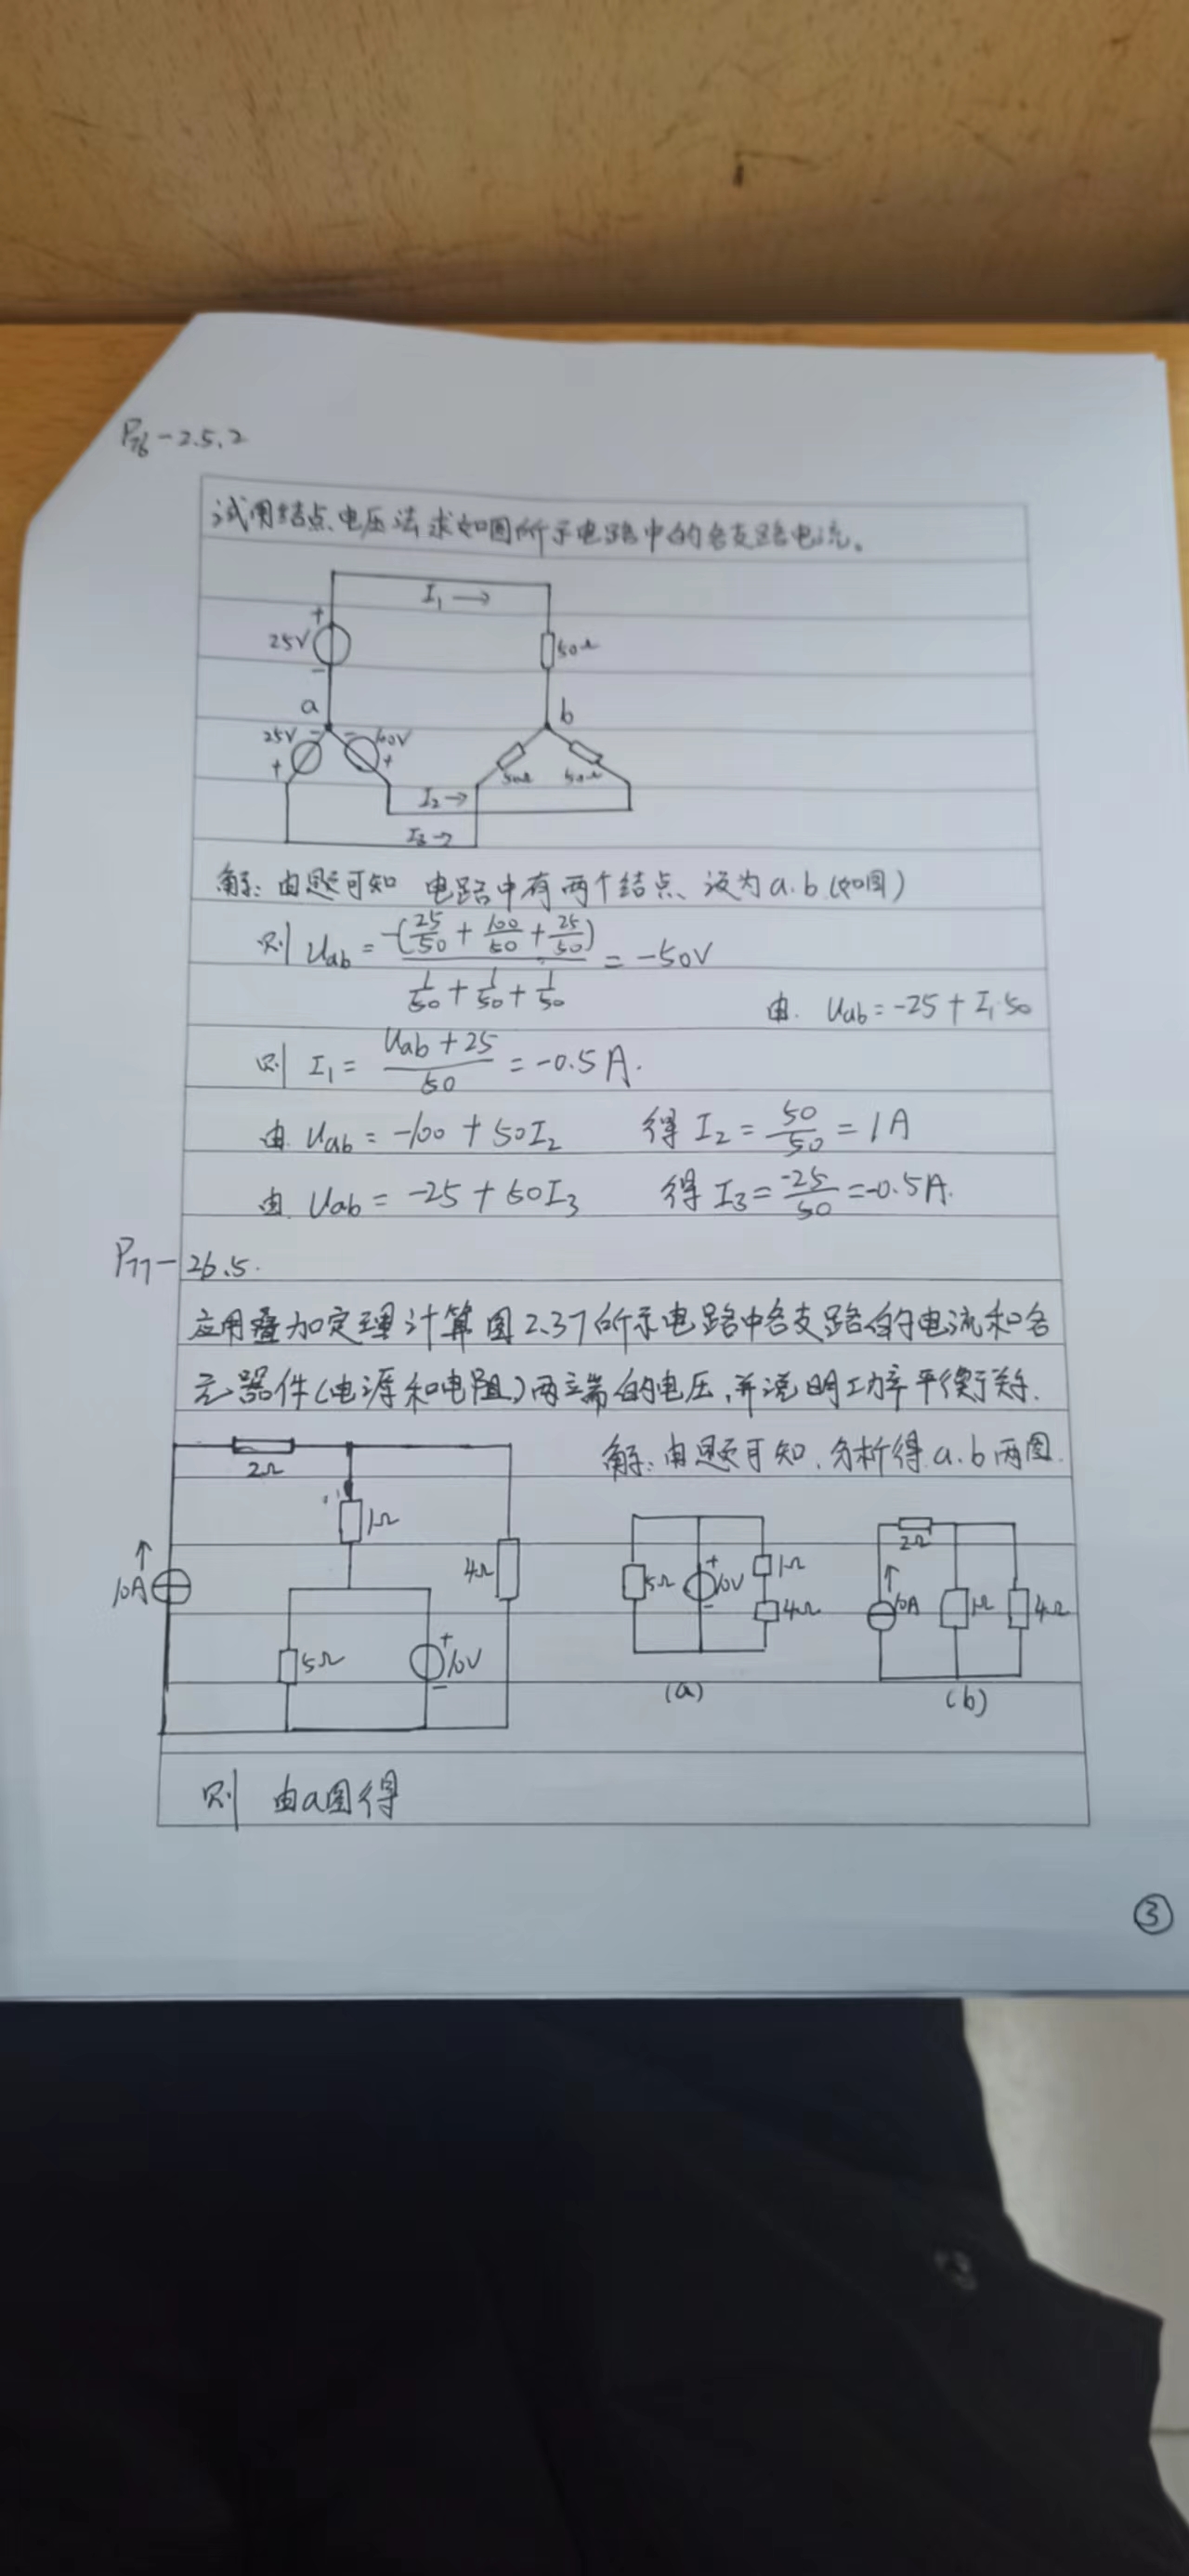 P76-2.5.2
试用结点电压法求如图所示电路中的各支路电流。
I₁ →
+
25V
-
50Ω
a
b
25V - - 100V
+ +
50Ω 50Ω
I₂→
I₃→
解:由题可知 电路中有两个结点、设为a.b(如图)
则 Uab = -(25/50 + 100/50 + 25/50) / (1/50 + 1/50 + 1/50) = -50V
由. Uab = -25 + I₁50
则 I₁ = (Uab+25)/50 = -0.5A.
由. Uab = -100 + 50I₂ 得 I₂ = 50/50 = 1A
由. Uab = -25 + 50I₃ 得 I₃ = -25/50 = -0.5A.
P77-26.5.
应用叠加定理计算图2.37所示电路中各支路的电流和各
元器件(电源和电阻)两端的电压,并说明功率平衡关系.
解:由题可知.分析得.a.b两图.
2Ω
1Ω
4Ω
↑
10A
5Ω
+
10V
-
5Ω
+
10V
-
1Ω
4Ω
(a)
2Ω
↑
10A
1Ω
4Ω
(b)
则 由a图得
③